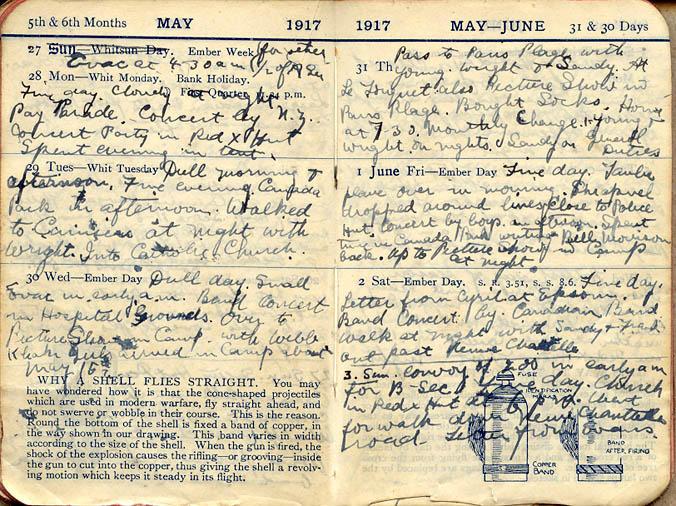 5th & 6th Months MAY 1917
27 Sun—Whitsun Day. Ember Week
Evac at 4 30 am
28 Mon—Whit Monday. Bank Holiday.
Fine day. Cloudy at night
First Quarter, p.m.
Pay Parade. Concert by N.Z.
Concert Party in Red X Hut
Spent evening in tent.
29 Tues—Whit Tuesday Dull morning &
afternoon. Fine evening. Canada
Park in afternoon. Walked
to Camiers at night with
Wright. Into Catholic Church.
30 Wed—Ember Day Dull day. Small
Evac in early a.m. Band Concert
in Hospital Grounds. Over to
Picture Show in Camp with Webb
Khaki arrived in Camp about
May 15th
WHY A SHELL FLIES STRAIGHT. You may
have wondered how it is that the cone-shaped projectiles
which are used in modern warfare, fly straight ahead, and
do not swerve or wobble in their course. This is the reason.
Round the bottom of the shell is fixed a band of copper, in
the way shown in our drawing. This band varies in width
according to the size of the shell. When the gun is fired, the
shock of the explosion causes the rifling—or grooving—inside
the gun to cut into the copper, thus giving the shell a revolv-
ing motion which keeps it steady in its flight.
1917 MAY—JUNE 31 & 30 Days
Pass to Paris Plage with
31 Th Young. Wright & Sandy. At
Le Touquet also Picture Show in
Paris Plage. Bought Socks. Home
at 7.30. Monthly Change. Young &
Wright on nights. Sandy on General
Duties
1 June Fri—Ember Day Fine day. Taube
plane over in morning. Shrapnel
dropped around lines close to Police
Hut. Concert by boys in afternoon. Spent
time in Canada Hut writing Bill Morrison
back. Up to Picture Show in Camp
at night
2 Sat—Ember Day. S. R. 3.51, S. S. 8.6. Fine day.
Letter from Cyril at Epsom.
Band Concert by Canadian Band
Walk at night with Sandy & Frank
out past
3. Sun. Convoy of 200 in early am
for B-Sec Fine day. Church
in Red X Hut at Went
for walk
road. Letter from
FUSE
IDENTIFICATION
BAND
COPPER
BAND
BAND
AFTER FIRING